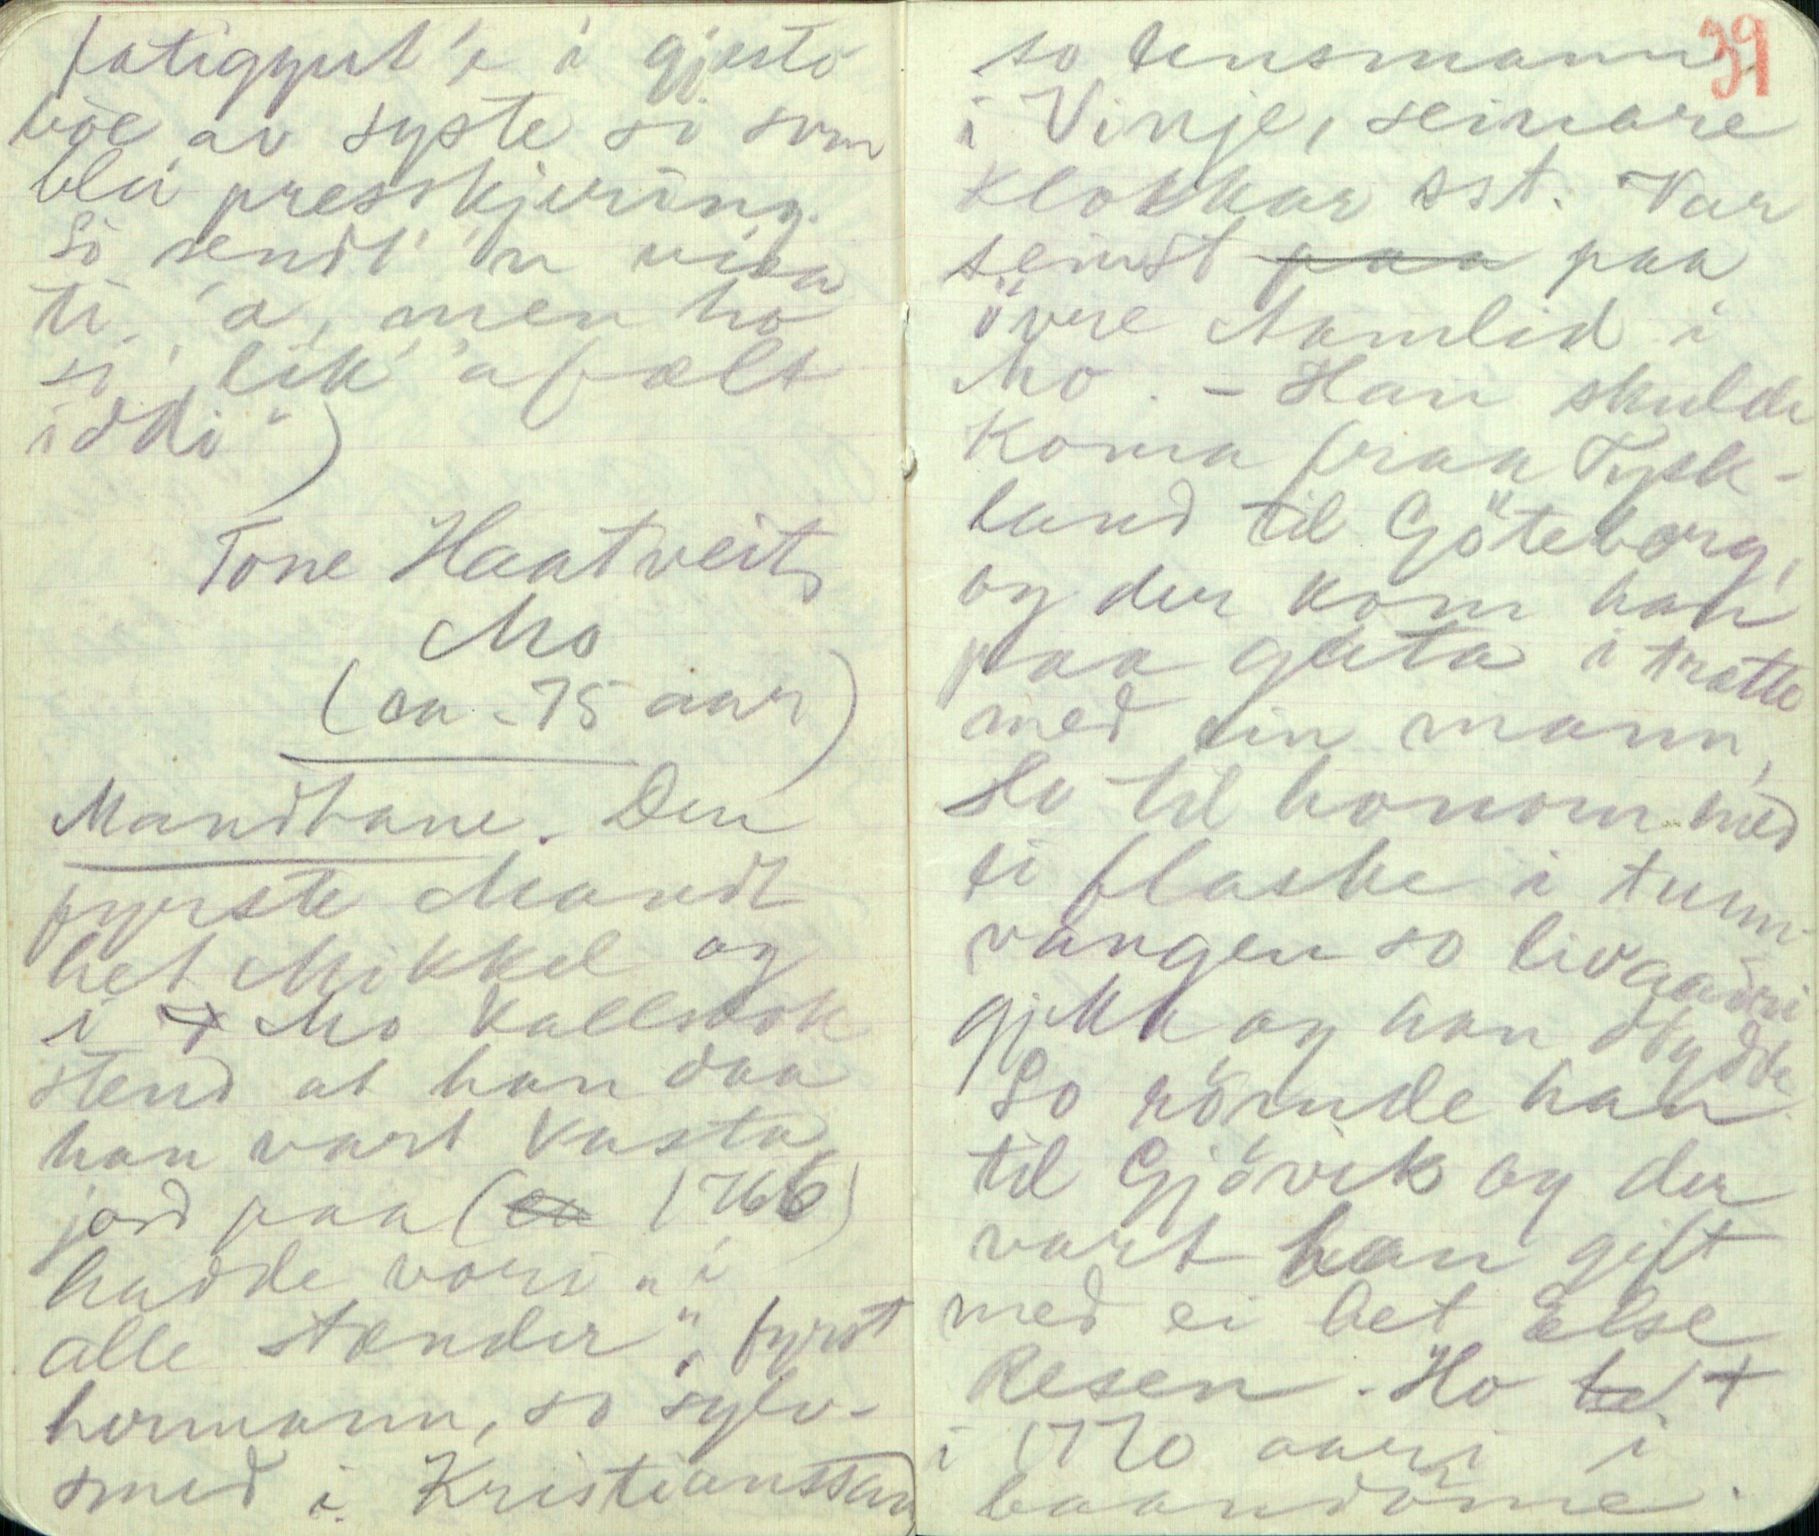 fatiggut'e i gjesto
böe av syste si som
blei presskjering.
So sendt 'n visa
ti 'a, men ho
si' lik' a fælt
iddi")
Tone Haatveit,
Mo
(ca. 75 aar)
Mandtane. Den
fyrste Mandt
het Mikkel og
i Mo kallsbok
stend at han daa
han vart kasta
jord paa (ca 1766)
hadde vori "i
alle stænder", fyrst
hermann, so sylv-
smed i Kristianssand
39
so lensmann
i Vinje, seinare
klokkar sst. Var
seinst paa paa
övre Aamlid i
Mo. - Han skulde
koma fraa Tysk-
land til Göteborg,
og der kom han
paa gata i trætte
med ein mann,
Slo til honom med
ei flaske i tunn-
vangen so livaadri
gjekk og han döydde
So römde han
til Gjövik og der
vart han gift
med ei het Else
Resen. Ho +
i 1770 aari i
baandöme.